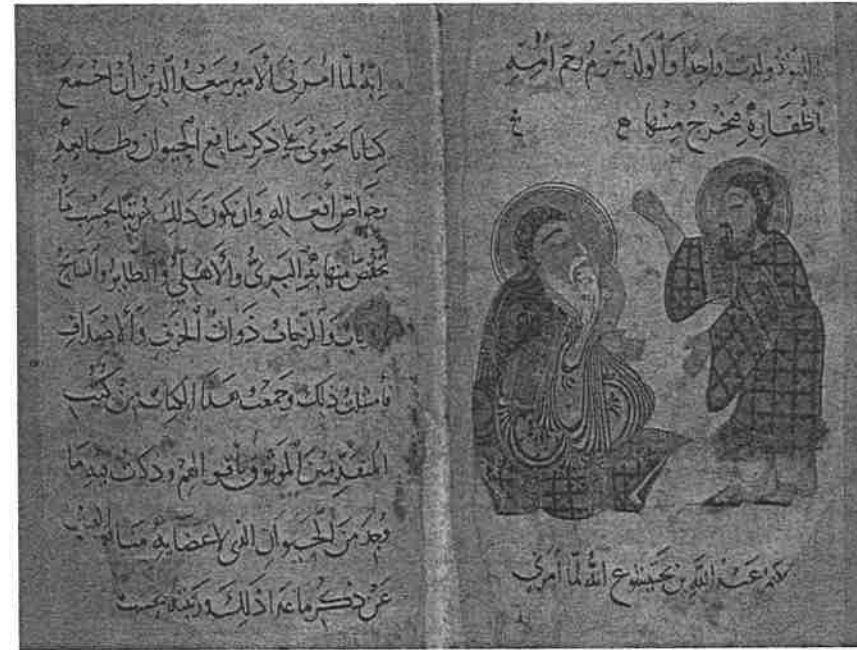 ولدت واحدا والولد يخرم رحم امه
باظفاره فيخرج منها
عبد الله بن بختيشوع الله لما أمرني
انه لما امرني الامير سعد الدين ان اجمع
كتابا يحتوي على ذكر منافع الحيوان وطبائعه
وخواص افعاله وان يكون ذلك مرتبا بحسب ما
منها به البري والاهلي والطاير والسابح
والرحاف ذوات الخزف والاصداف
فامتثلت ذلك وجمعت هذا الكتاب من كتب
المتقدمين الموثوق باقوالهم وذكرت فيه ما
وجد من الحيوان الذي لاعضايه منافع
عن ذكر ما عدا ذلك ورتبته بحسب